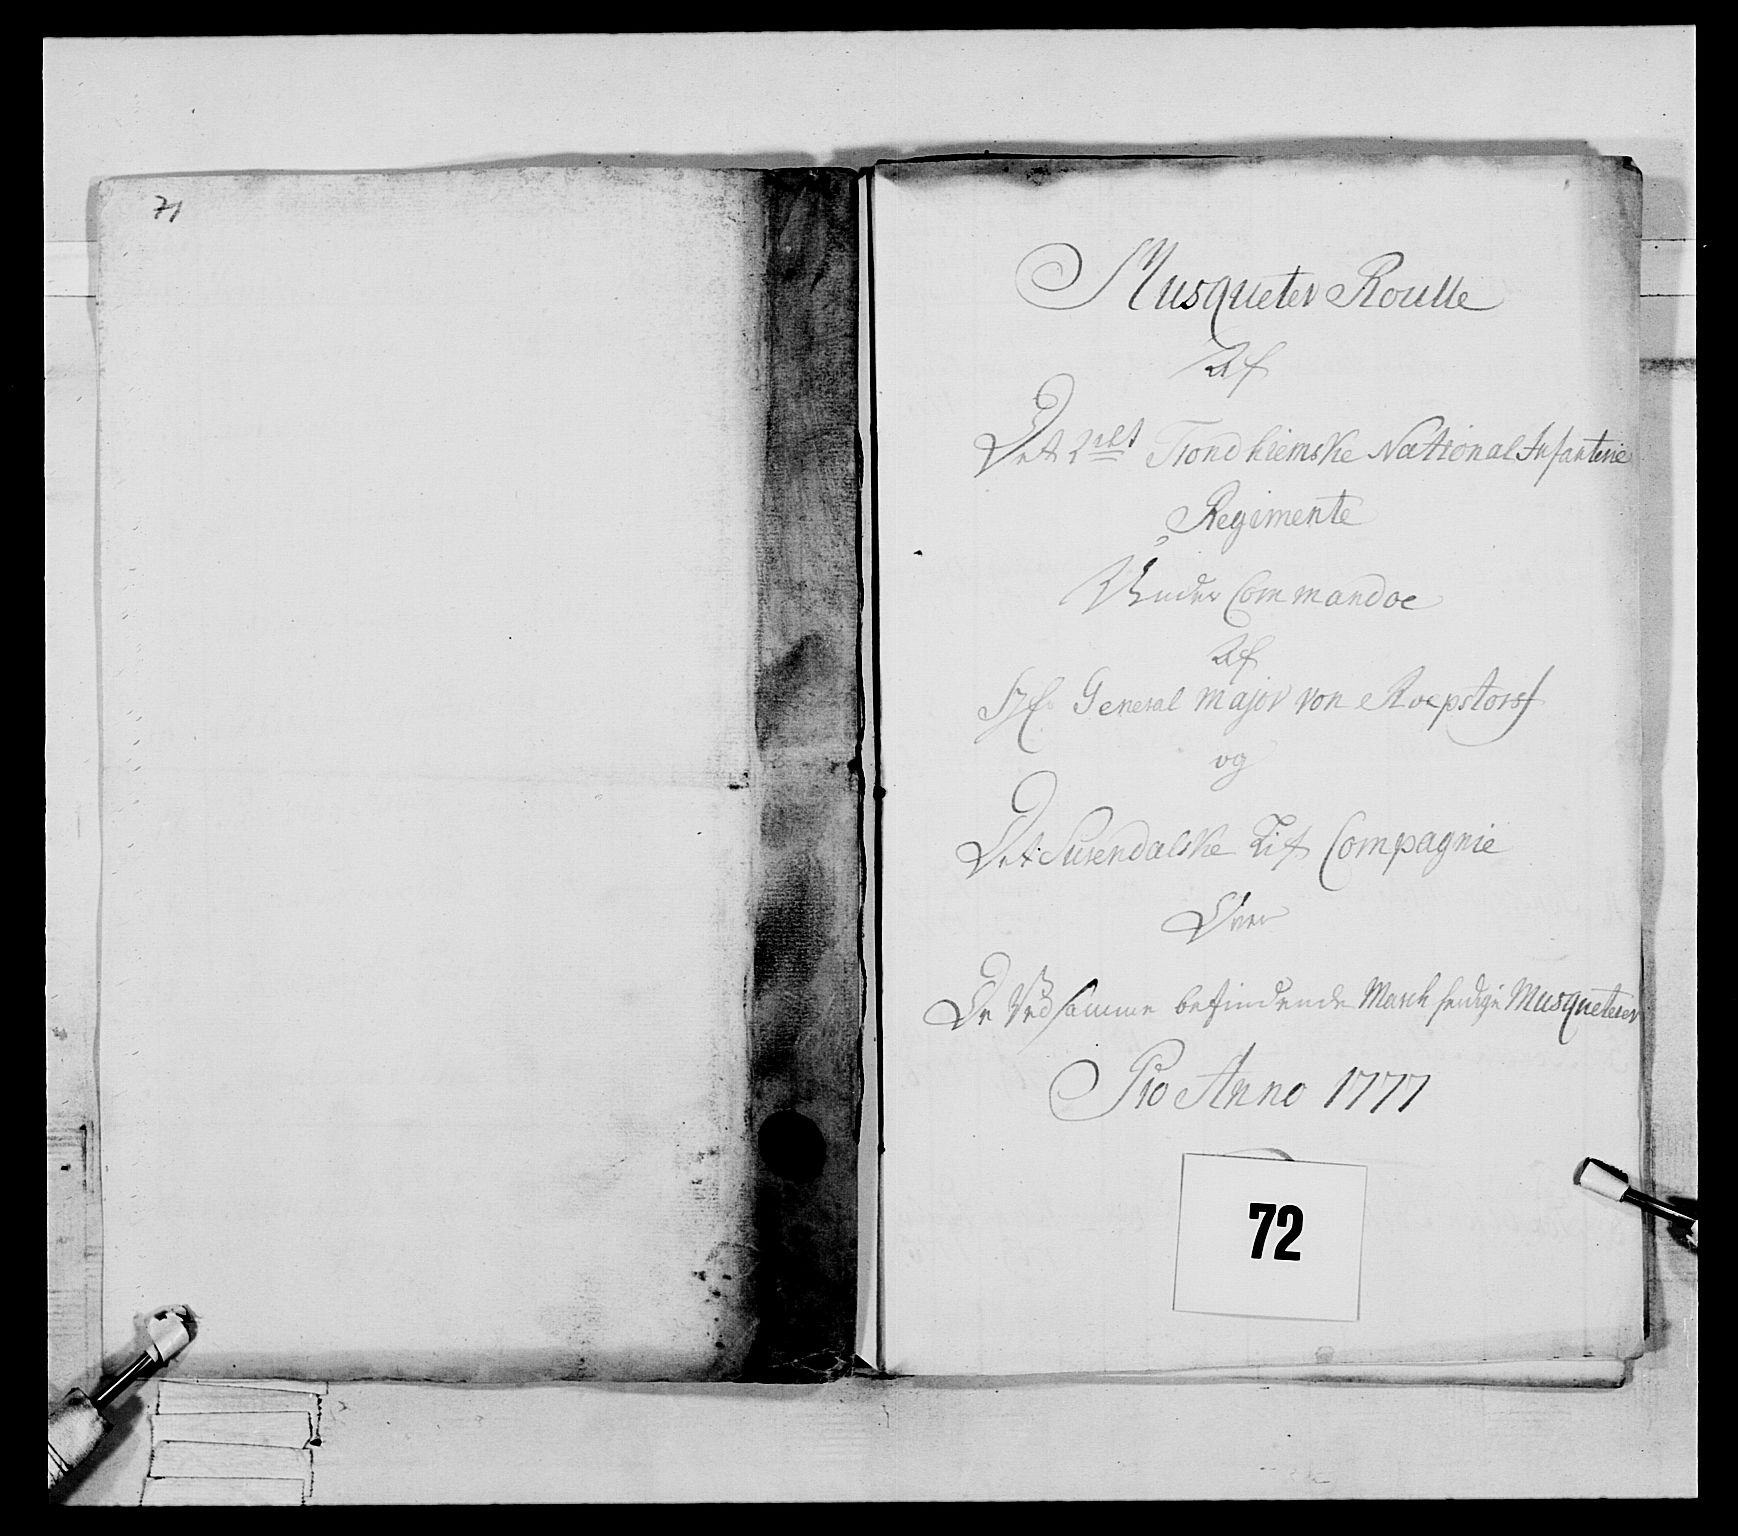 71
Musqueter Roulle
Af
Det 2det Trondhiemske National Infanterie
Regimente
Under Commandoe
Af
Hr General major von Roepstorff
og
Det Surendalske Lif Compagnie
Over
De Ved samme befindende March ferdige Musqueterer
Pro Anno 1777
72